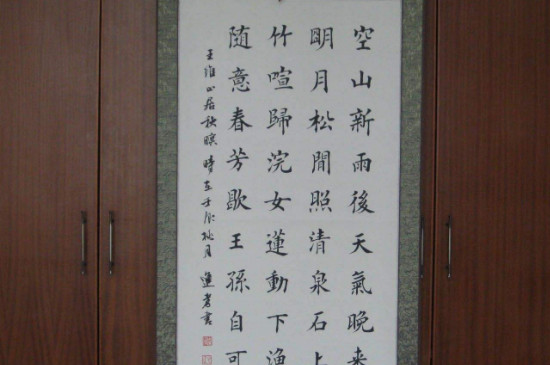 空山新雨後天氣晚来
明月松間照清泉石上
竹喧歸浣女蓮動下漁
随意春芳歇王孫自可
王维山居秋暝時在壬辰桃月書